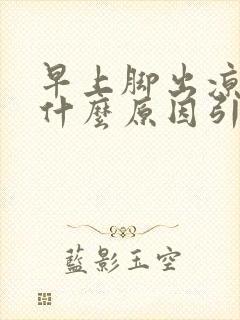 早上脚出凉
什麼原因引
藍影玉空